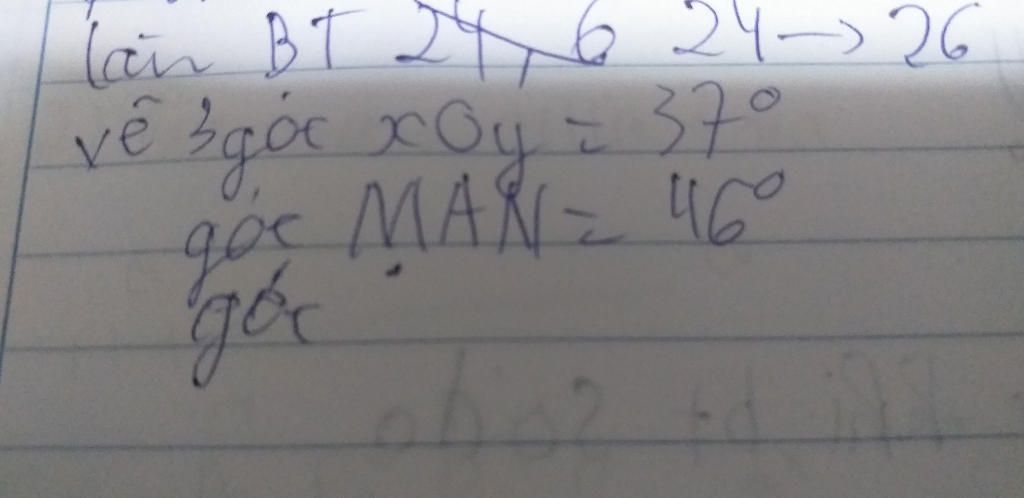 làm BT 24 → 26
vẽ 3 góc xOy = 37°
góc MAN = 46°
góc